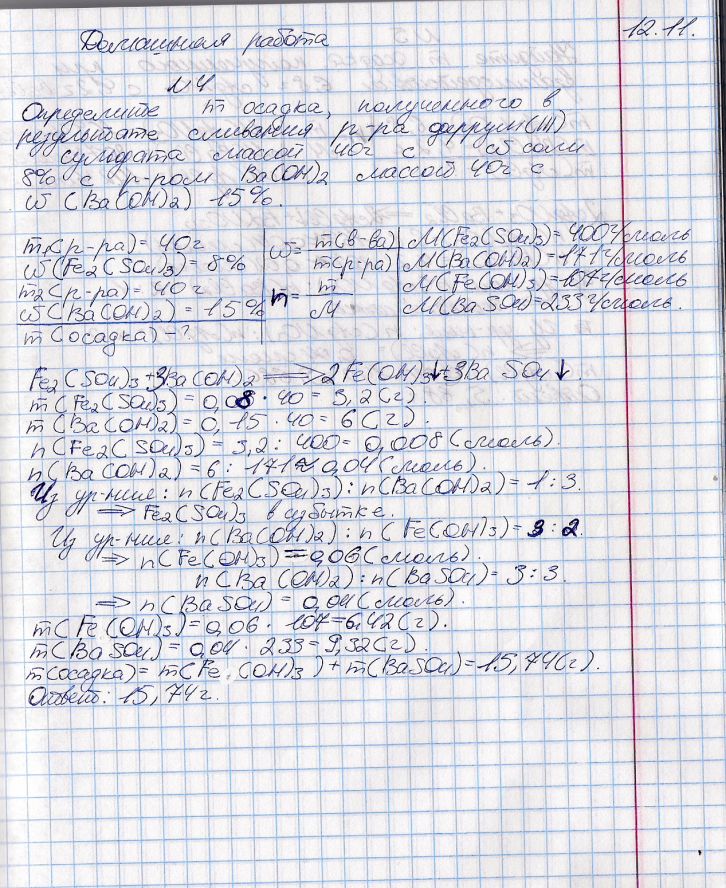 12.11.
Домашняя работа
№4
Определите m осадка, полученного в
результате сливания р-ра феррум(III)
сульфата массой 40г с ω соли
8% с р-ром Ba(OH)2 массой 40г с
ω(Ba(OH)2) 15%.
m1(р-ра)=40г
ω(Fe2(SO4)3)=8%
m2(р-ра)=40г
ω(Ba(OH)2)=15%
m(осадка)-?
ω=m(в-ва)/m(р-ра)
n=m/M
M(Fe2(SO4)3)=400г/моль
M(Ba(OH)2)=171г/моль
M(Fe(OH)3)=107г/моль
M(BaSO4)=233г/моль.
Fe2(SO4)3+3Ba(OH)2⟹2Fe(OH)3↓+3BaSO4↓.
m(Fe2(SO4)3)=0,08·40=3,2(г).
m(Ba(OH)2)=0,15·40=6(г).
n(Fe2(SO4)3)=3,2:400=0,008(моль).
n(Ba(OH)2)=6:171≈0,04(моль).
Из ур-ния: n(Fe2(SO4)3):n(Ba(OH)2)=1:3.
⟹Fe2(SO4)3 в избытке.
Из ур-ния: n(Ba(OH)2):n(Fe(OH)3)=3:2.
⟹n(Fe(OH)3)=0,06(моль).
n(Ba(OH)2):n(BaSO4)=3:3.
⟹n(BaSO4)=0,04(моль).
m(Fe(OH)3)=0,06·107=6,42(г).
m(BaSO4)=0,04·233=9,32(г).
m(осадка)=m(Fe(OH)3)+m(BaSO4)=15,74(г).
Ответ: 15,74г.